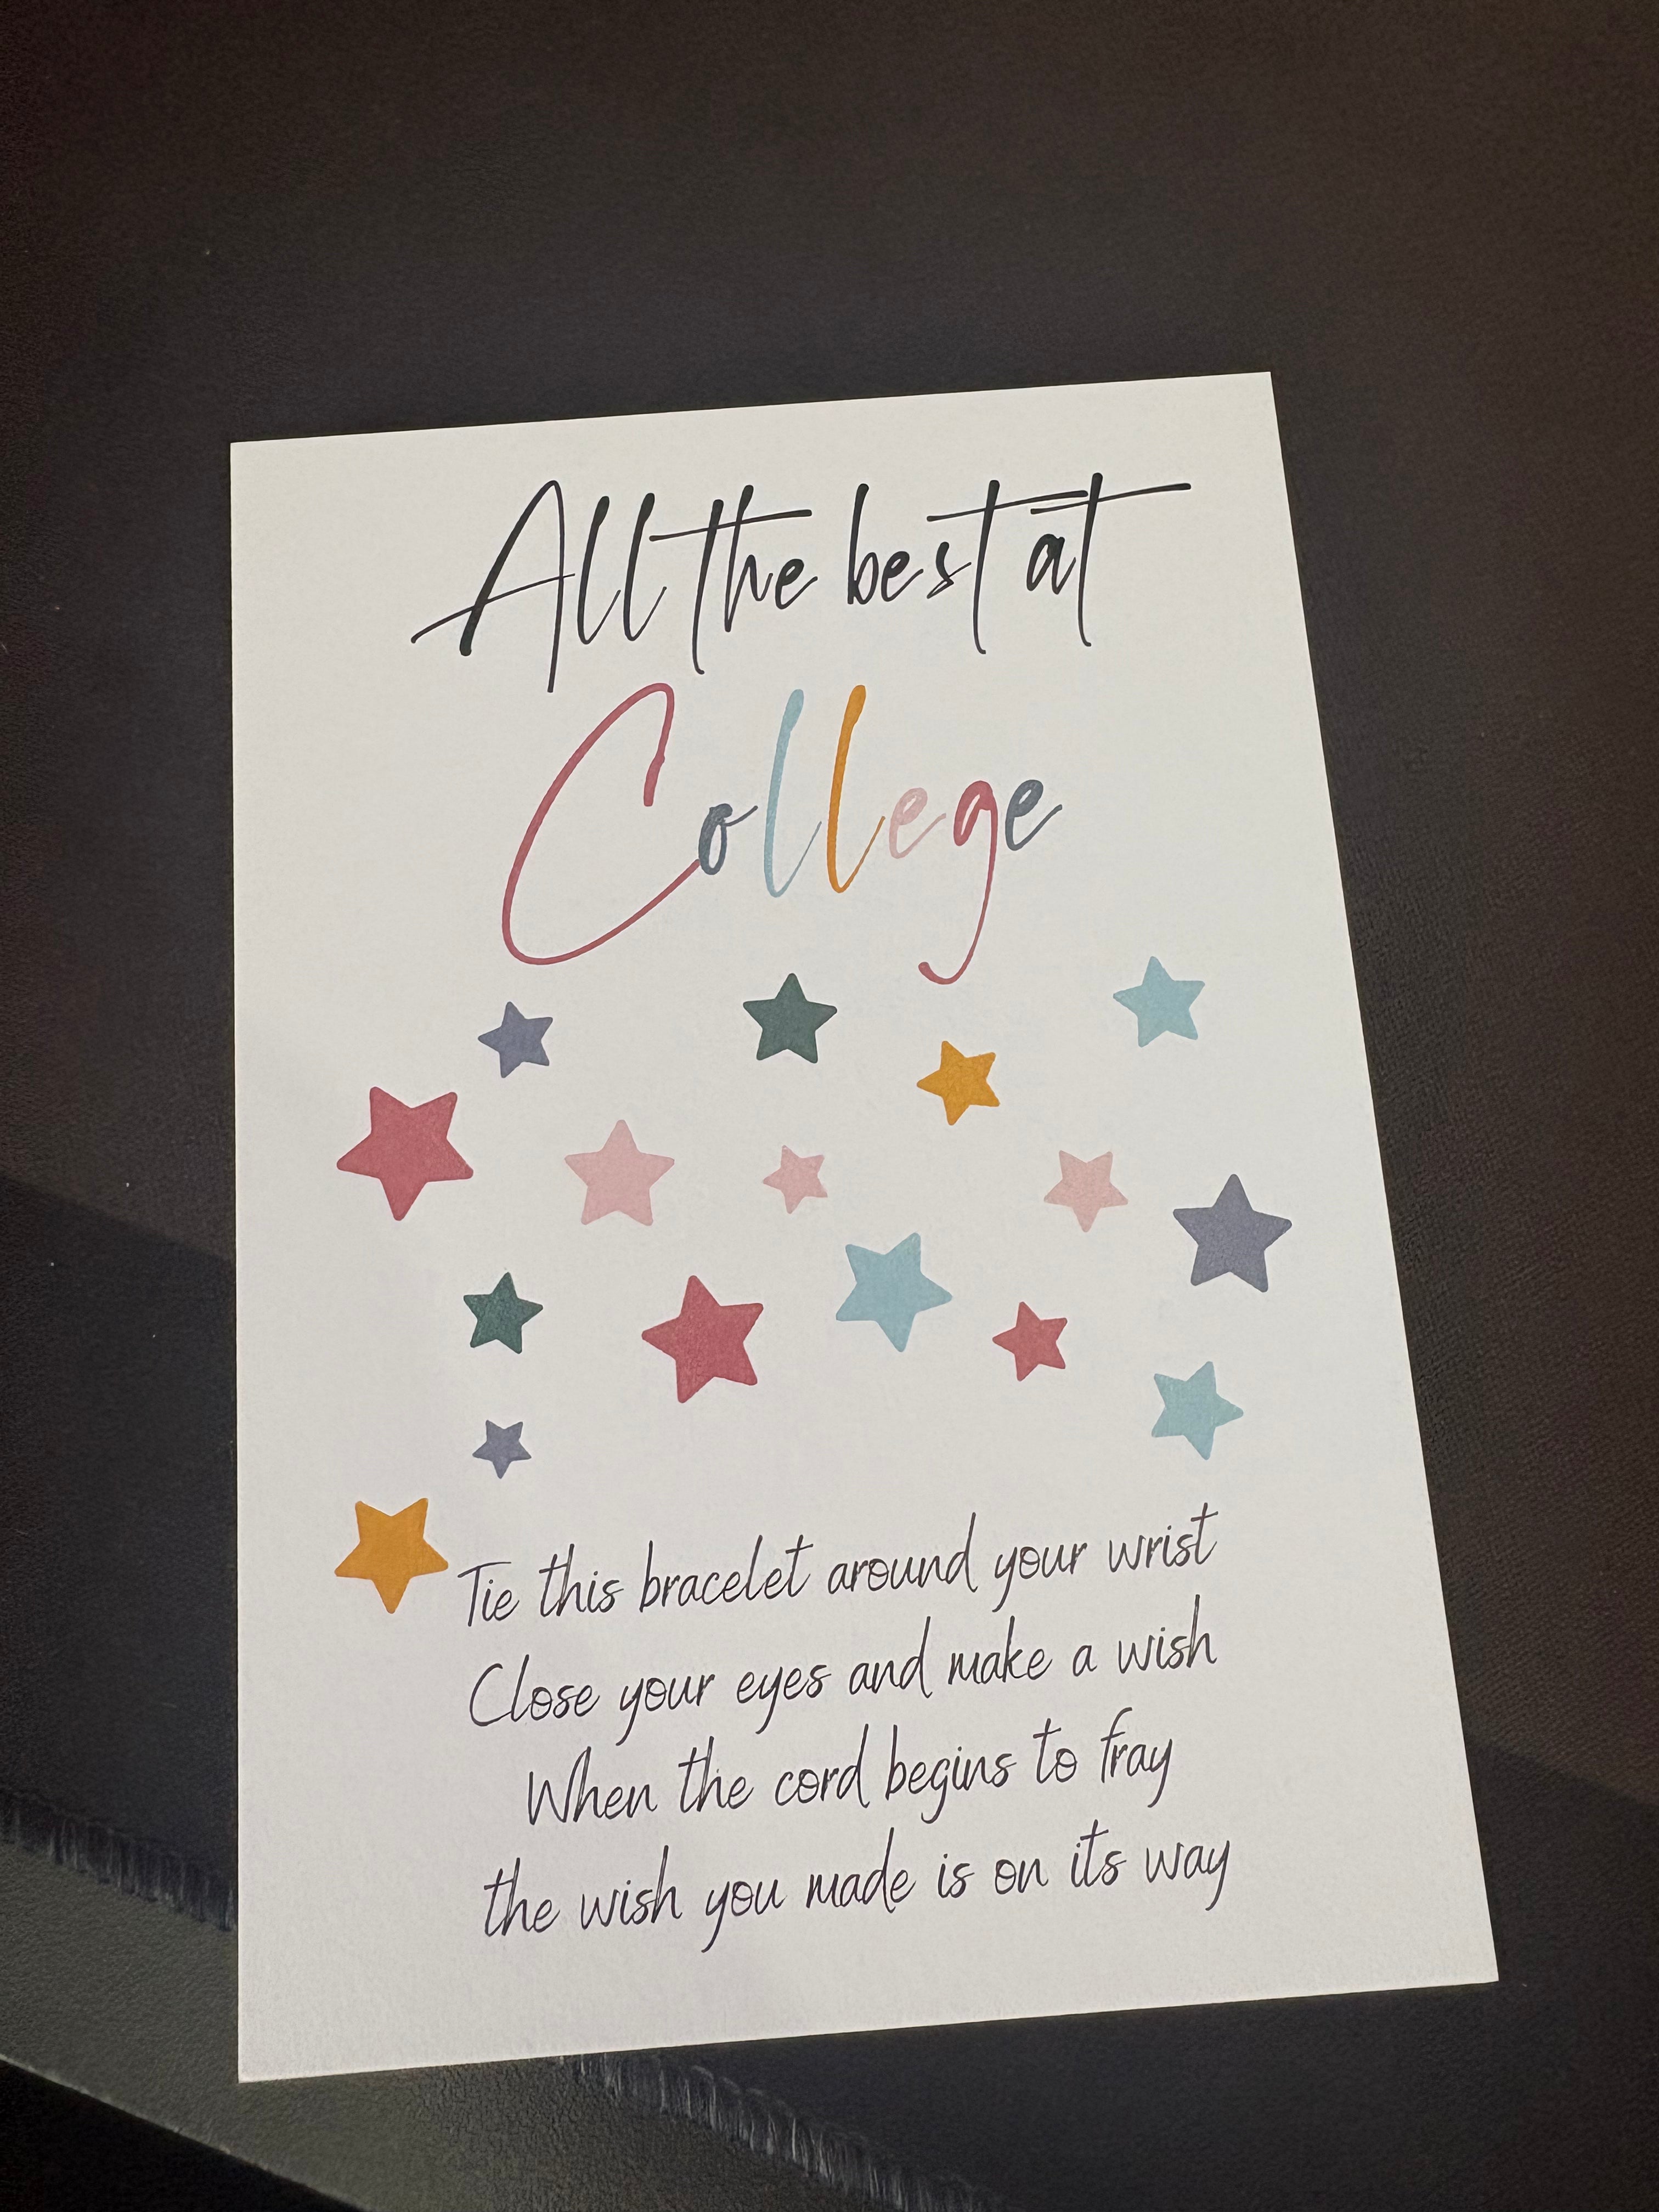 All the best at
College
Tie this bracelet around your wrist
Close your eyes and make a wish
When the cord begins to fray
the wish you made is on its way